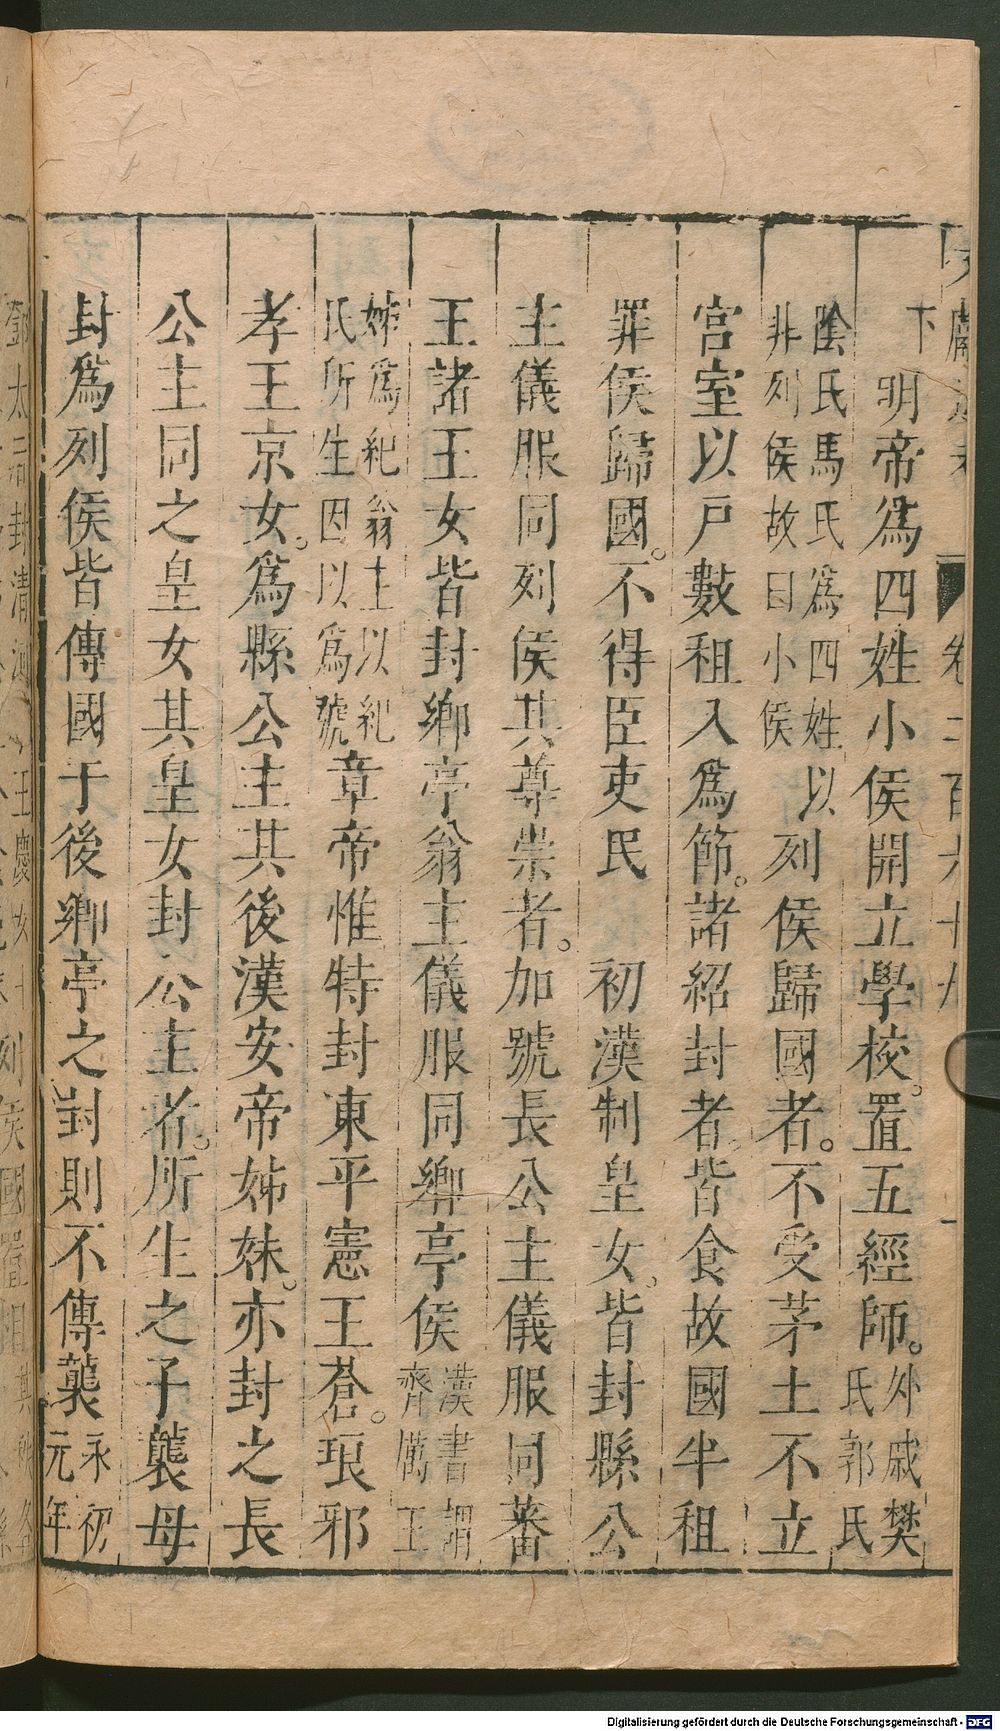 下　明帝爲四姓小侯開立學校。置五經師。外戚樊
氏郭氏
陰氏馬氏爲四姓以
非列侯故曰小侯列侯歸國者。不受茅土不立
宮室以戸數租入爲節。諸紹封者皆食故國半租
罪侯歸國。不得臣吏民　初漢制皇女。皆封縣公
主儀服同列侯其尊崇者。加號長公主儀服同蕃
王諸王女皆封鄉亭翁主儀服同鄉亭侯漢書
齊厲王
姊爲紀翁主以紀
氏所生因以爲號章帝惟特封東平憲王蒼。琅邪
孝王京女。爲縣公主其後漢安帝姊妹。亦封之長
公主同之皇女其皇女封公主者。所生之子襲母
封爲列侯皆傳國于後鄉亭之封則不傳襲永初
元年
卷二百六十九
Digitalisierung gefördert durch die Deutsche Forschungsgemeinschaft - DFG